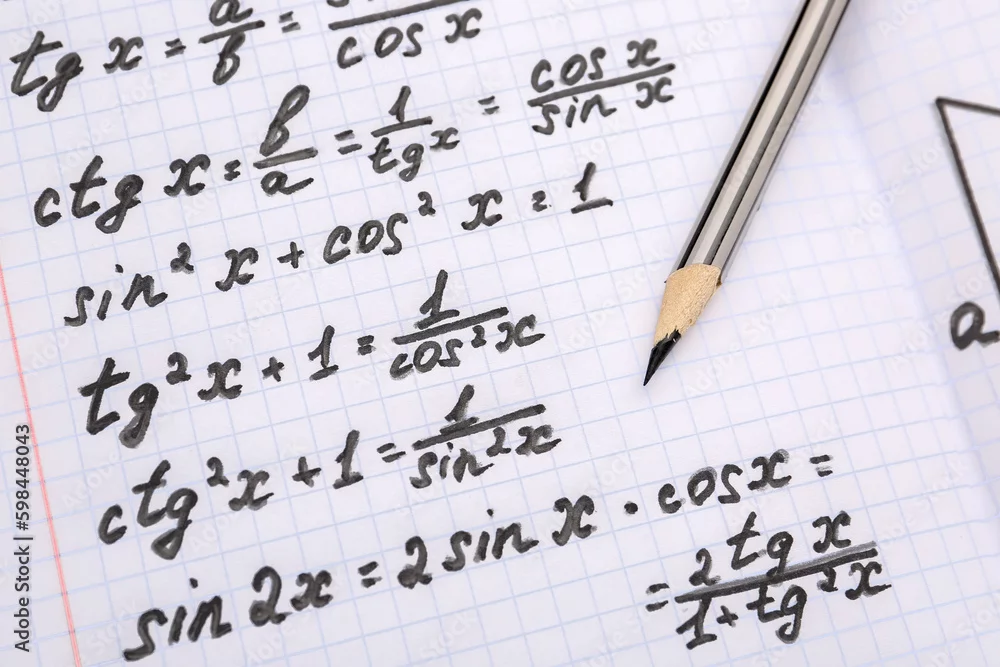 tg x = a/b = sin x/cos x
ctg x = b/a = 1/tg x = cos x/sin x
sin² x + cos² x = 1
tg² x + 1 = 1/cos² x
ctg² x + 1 = 1/sin² x
sin 2x = 2 sin x · cos x =
= 2 tg x/1 + tg² x
a
Adobe Stock | #598448043